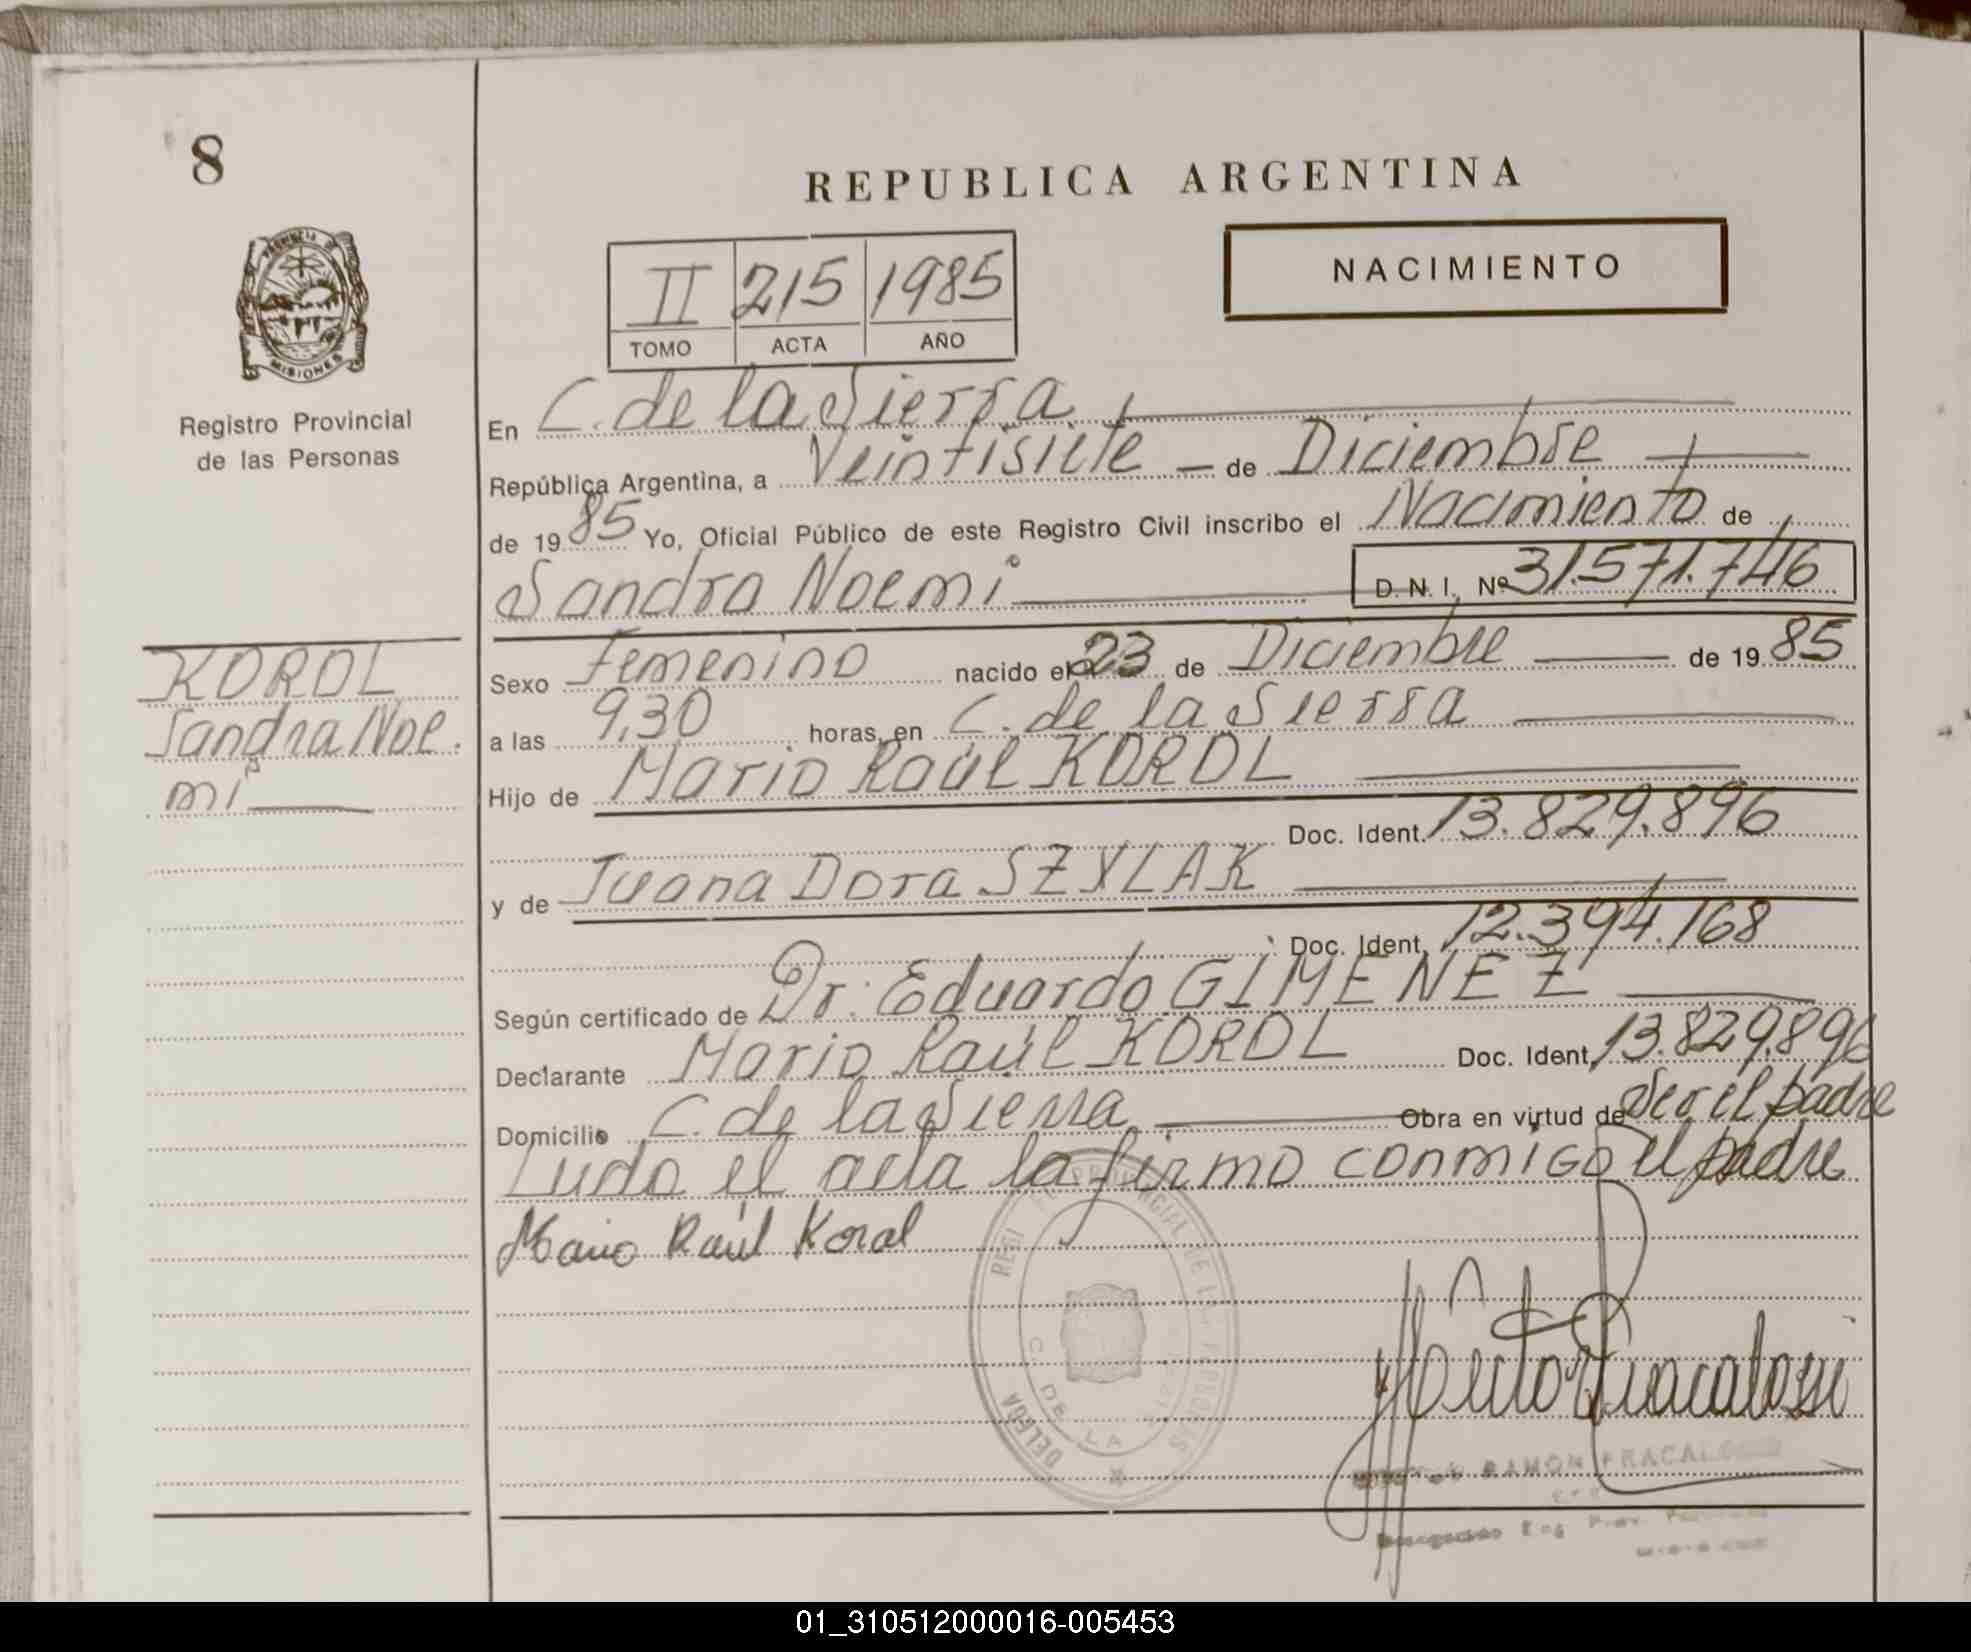 8
REPUBLICA ARGENTINA
NACIMIENTO
II 215 1985
TOMO ACTA AÑO
PROVINCIA DE
MISIONES
Registro Provincial
de las Personas
En C. de la Sierra
República Argentina, a Veintisiete — de Diciembre
de 1985 Yo, Oficial Público de este Registro Civil inscribo el Nacimiento de
Sandra Noemi D. N. I. Nº 31.571.746
KOROL
Sandra Noe.
mi
Sexo Femenino nacido el 23 de Diciembre de 1985
a las 9,30 horas, en C. de la Sierra
Hijo de Mario Raúl KOROL
Doc. Ident. 13.829.896
y de Juana Dora SZYLAK
Doc. Ident. 12.394.168
Según certificado de Dr. Eduardo GIMENEZ
Declarante Mario Raúl KOROL Doc. Ident. 13.829.896
Domicilio C. de la Sierra Obra en virtud de Ser el padre
Leida el acta la firma conmigo el padre
Mario Raúl Korol
PROVINCIAL DE
DELEGA
C. DE LA
RAMON FRACAL
01_310512000016-005453